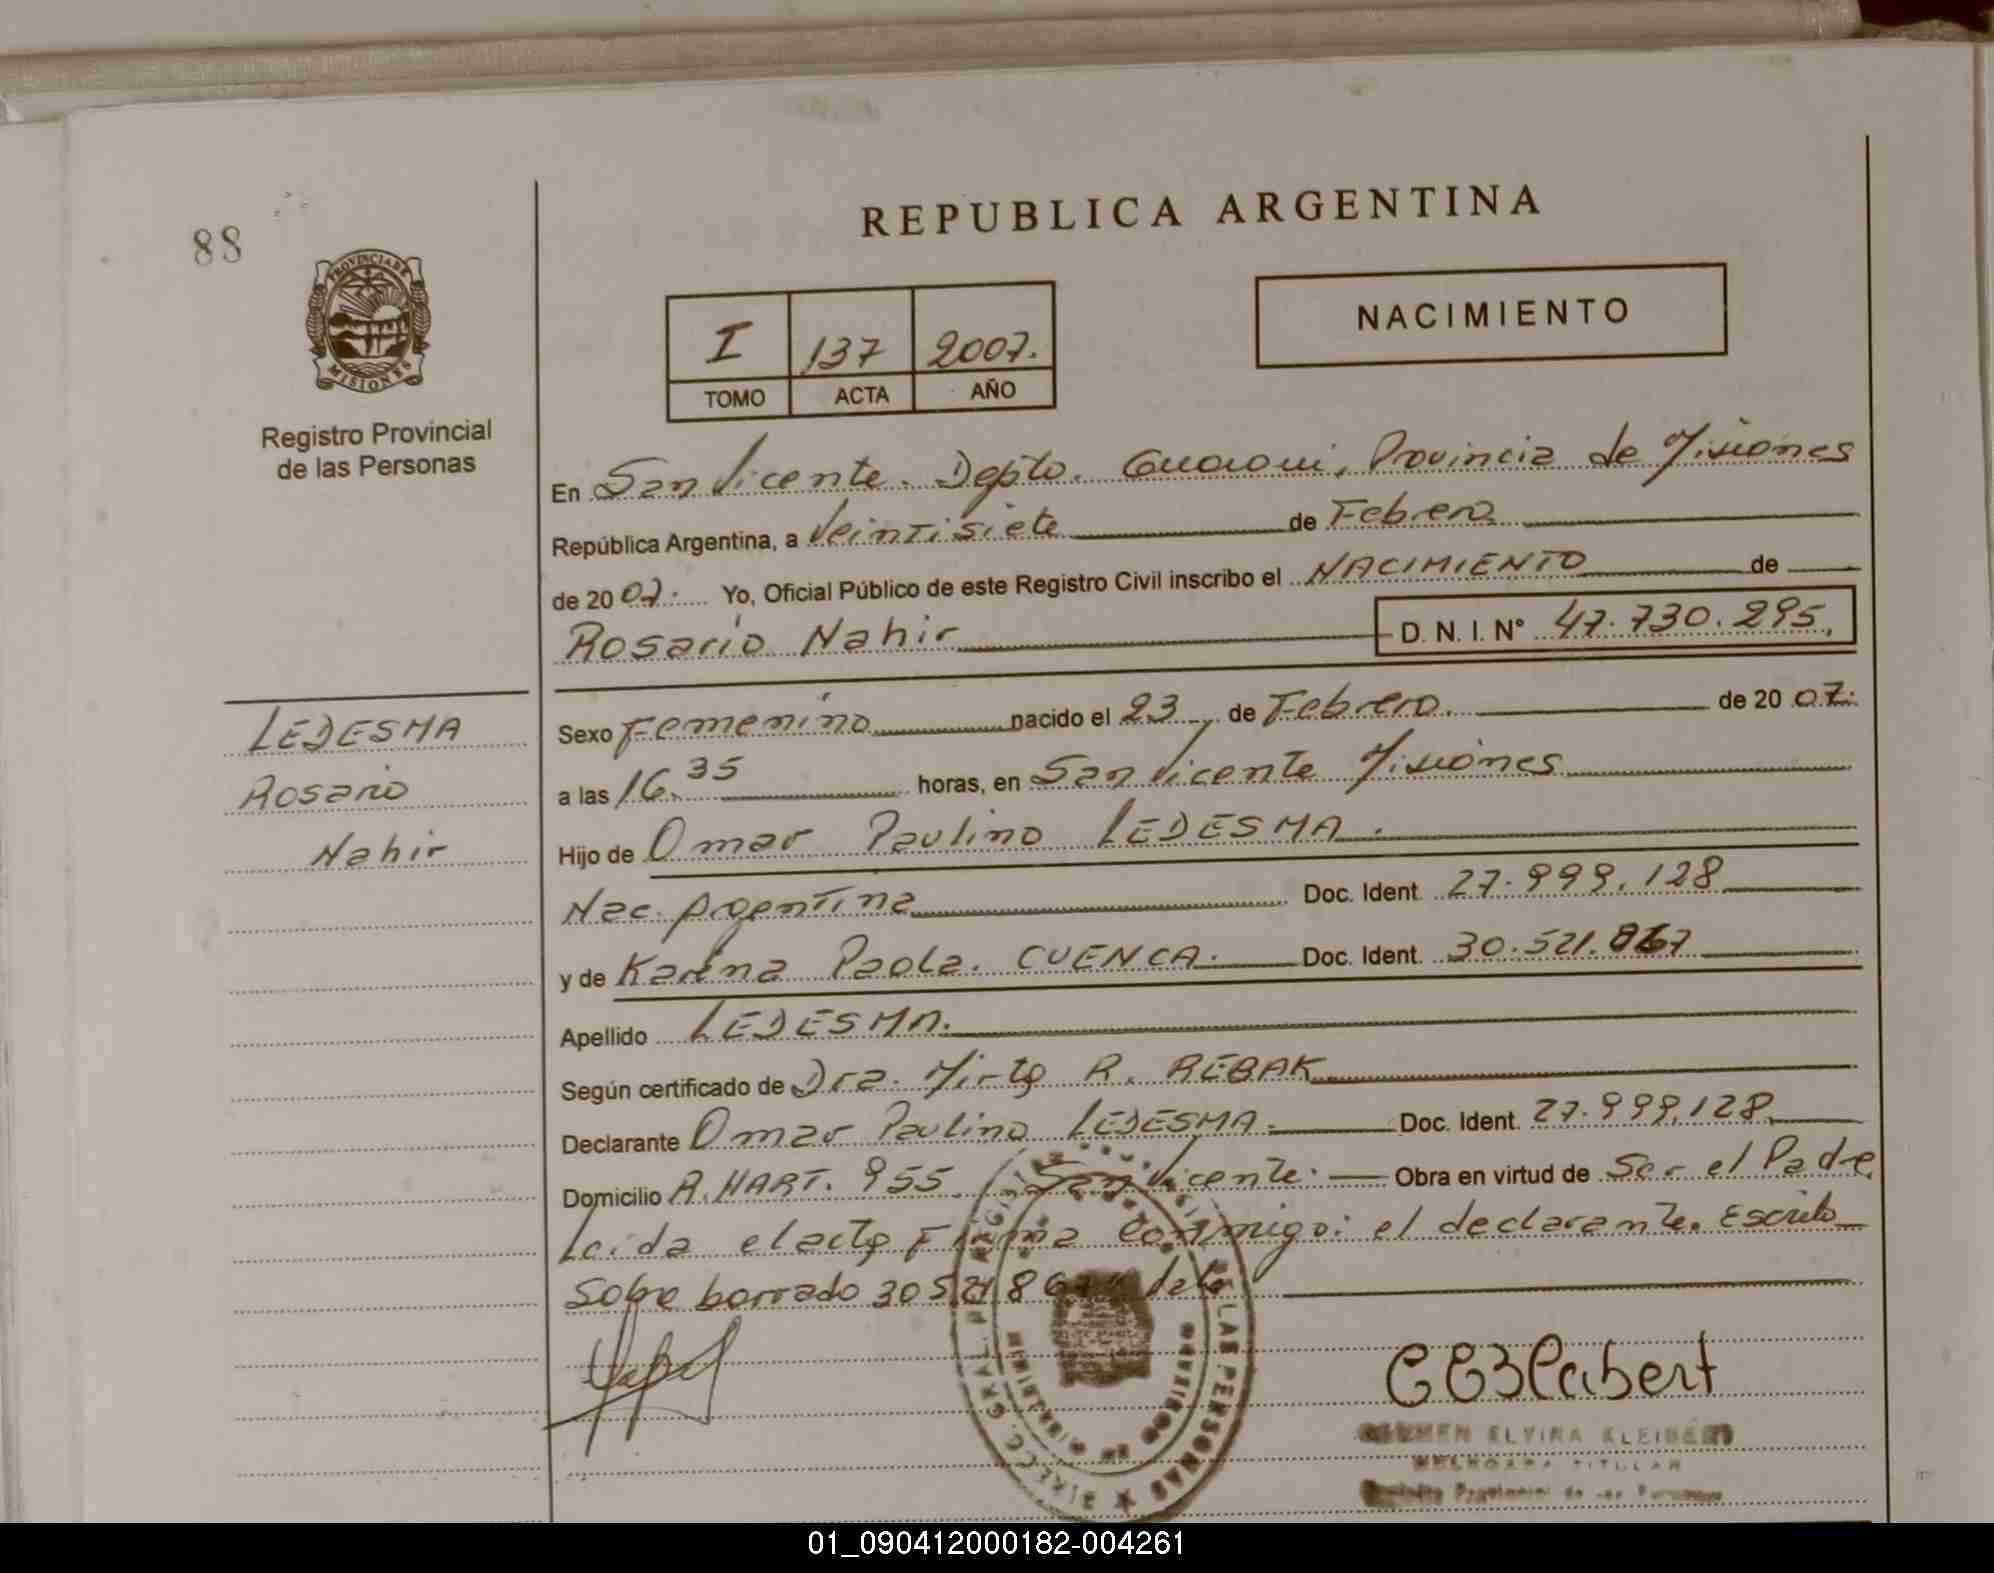 88
PROVINCIA DE
MISIONES
Registro Provincial
de las Personas
REPUBLICA ARGENTINA
I 137 2007.
TOMO ACTA AÑO
NACIMIENTO
En San Vicente. Depto. Guarani, Provincia de Misiones
República Argentina, a Veintisiete de Febrero
de 2007. Yo, Oficial Público de este Registro Civil inscribo el NACIMIENTO de
Rosario Nahir D. N. I. N° 47.730.295,
LEDESMA
Rosario
Nahir
Sexo Femenino nacido el 23 de Febrero. de 2007.
a las 16.35 horas, en San Vicente Misiones
Hijo de Omar Paulino LEDESMA.
Nac. Argentina Doc. Ident. 27.999.128
y de Karina Paola. CUENCA. Doc. Ident. 30.521.867
Apellido LEDESMA.
Según certificado de Dra. Mirta R. REBAK
Declarante Omar Paulino LEDESMA. Doc. Ident. 27.999.128
Domicilio A. HART. 955 San Vicente. Obra en virtud de Ser el Padre
Leida el acta Firma Conmigo: el declarante. Escrito
Sobre borrado 30521867 Vale
DIREC. GRAL. REGISTRO PROVINCIAL DE LAS PERSONAS
CARMEN ELVIRA KLEIBERT
TITULAR
Registro Provincial de las Personas
01_090412000182-004261